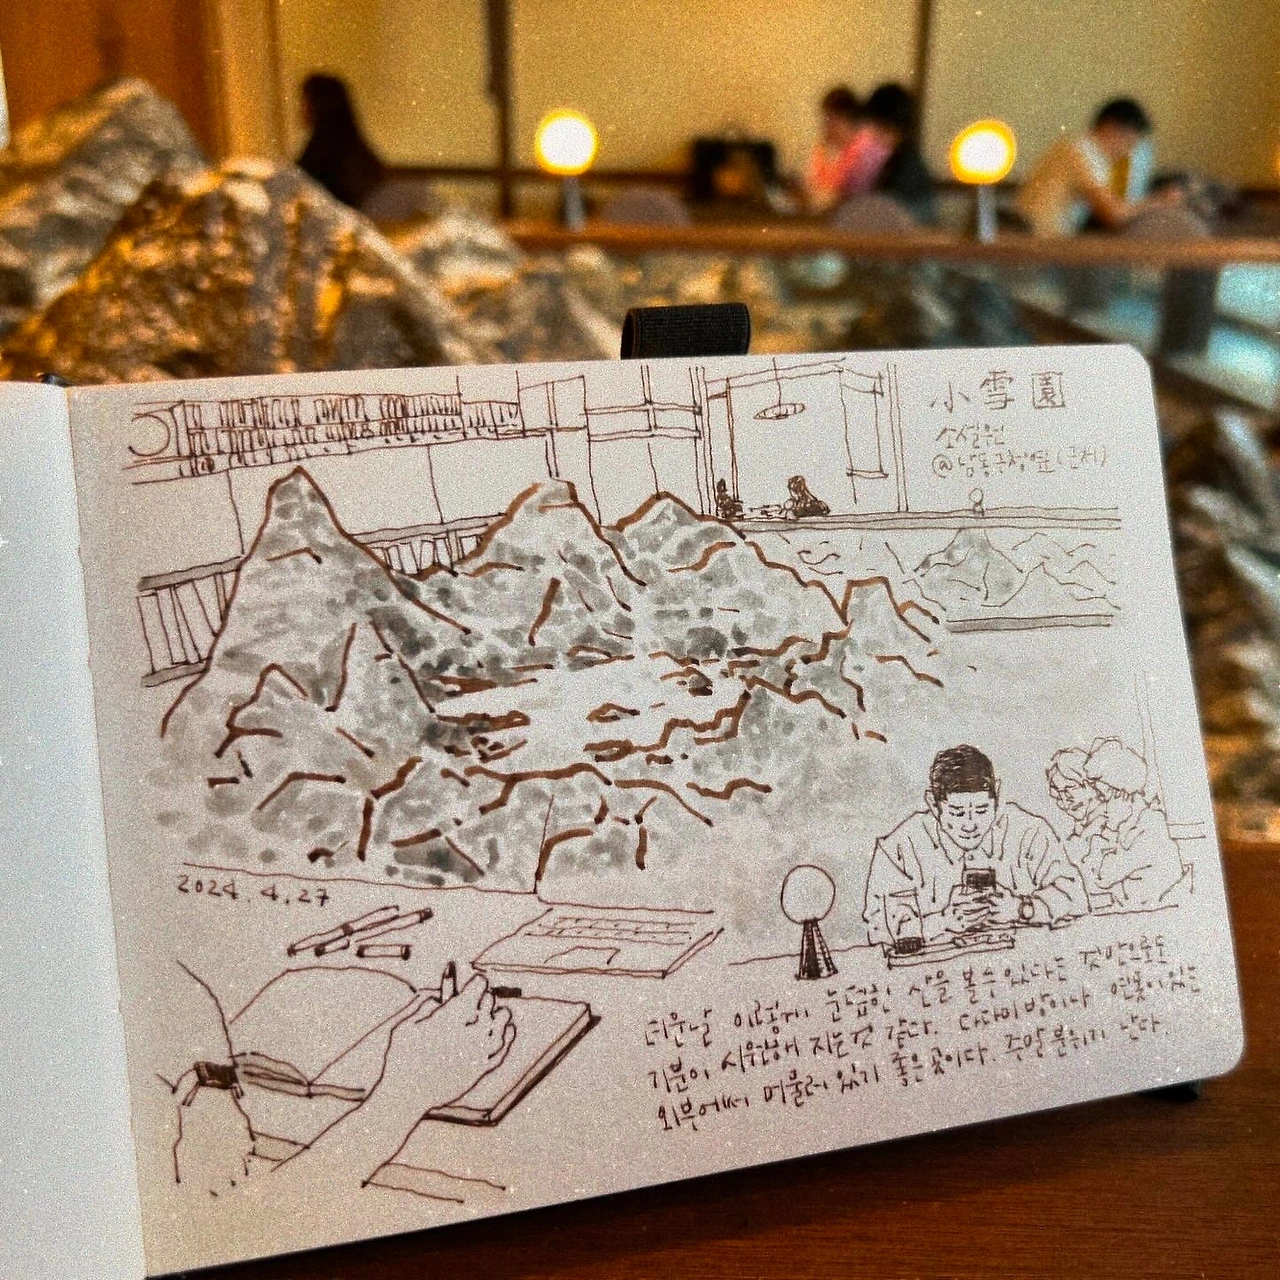 小雪園
소설원
@남동구청옆(근처)
2024.4.27
더운날 이렇게 눈덮힌 산을 볼수있다는 것만으로도
기분이 시원해 지는것 같다. 다다미방이나 연못이있는
외부에써 머물러 있기 좋은곳이다. 주말분위기 난다.